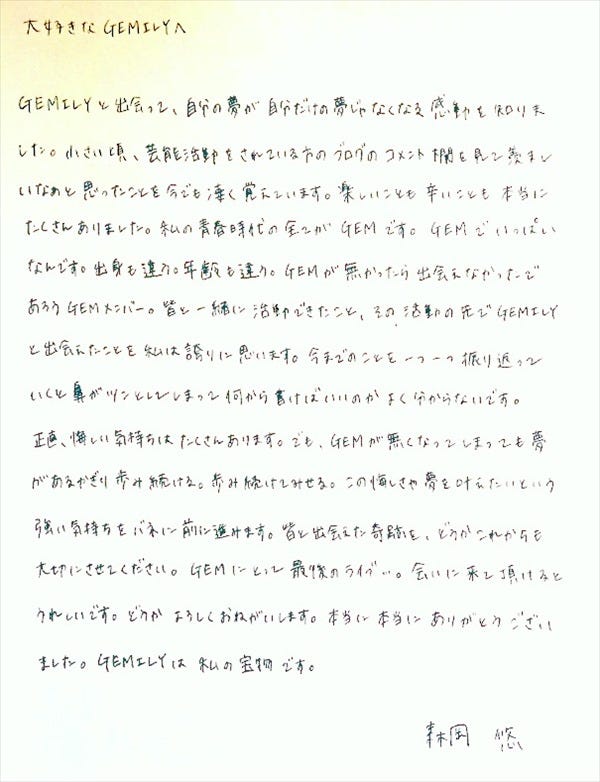 大好きなGEMILYへ
GEMILYと出会って、自分の夢が自分だけの夢じゃなくなる感動を知りま
した。小さい頃、芸能活動をされている方のブログのコメント欄を見て羨まし
いなぁと思ったことを今でも凄く覚えています。楽しいことも辛いことも本当に
たくさんありました。私の青春時代の全てがGEMです。GEMでいっぱい
なんです。出身も違う。年齢も違う。GEMが無かったら出会えなかったで
あろうGEMメンバー。皆と一緒に活動できたこと、その活動の先でGEMILY
と出会えたことを私は誇りに思います。今までのことを一つ一つ振り返って
いくと鼻がツンとしてしまって何から書けばいいのかよく分からないです。
正直、悔しい気持ちはたくさんあります。でも、GEMが無くなってしまっても夢
があるかぎり歩み続ける。歩み続けてみせる。この悔しさや夢を叶えたいという
強い気持ちをバネに前に進みます。皆と出会えた奇跡を、どうかこれからも
大切にさせてください。GEMにとって最後のライブ…。会いに来て頂けると
うれしいです。どうかよろしくおねがいします。本当に本当にありがとうござい
ました。GEMILYは私の宝物です。
森岡 悠